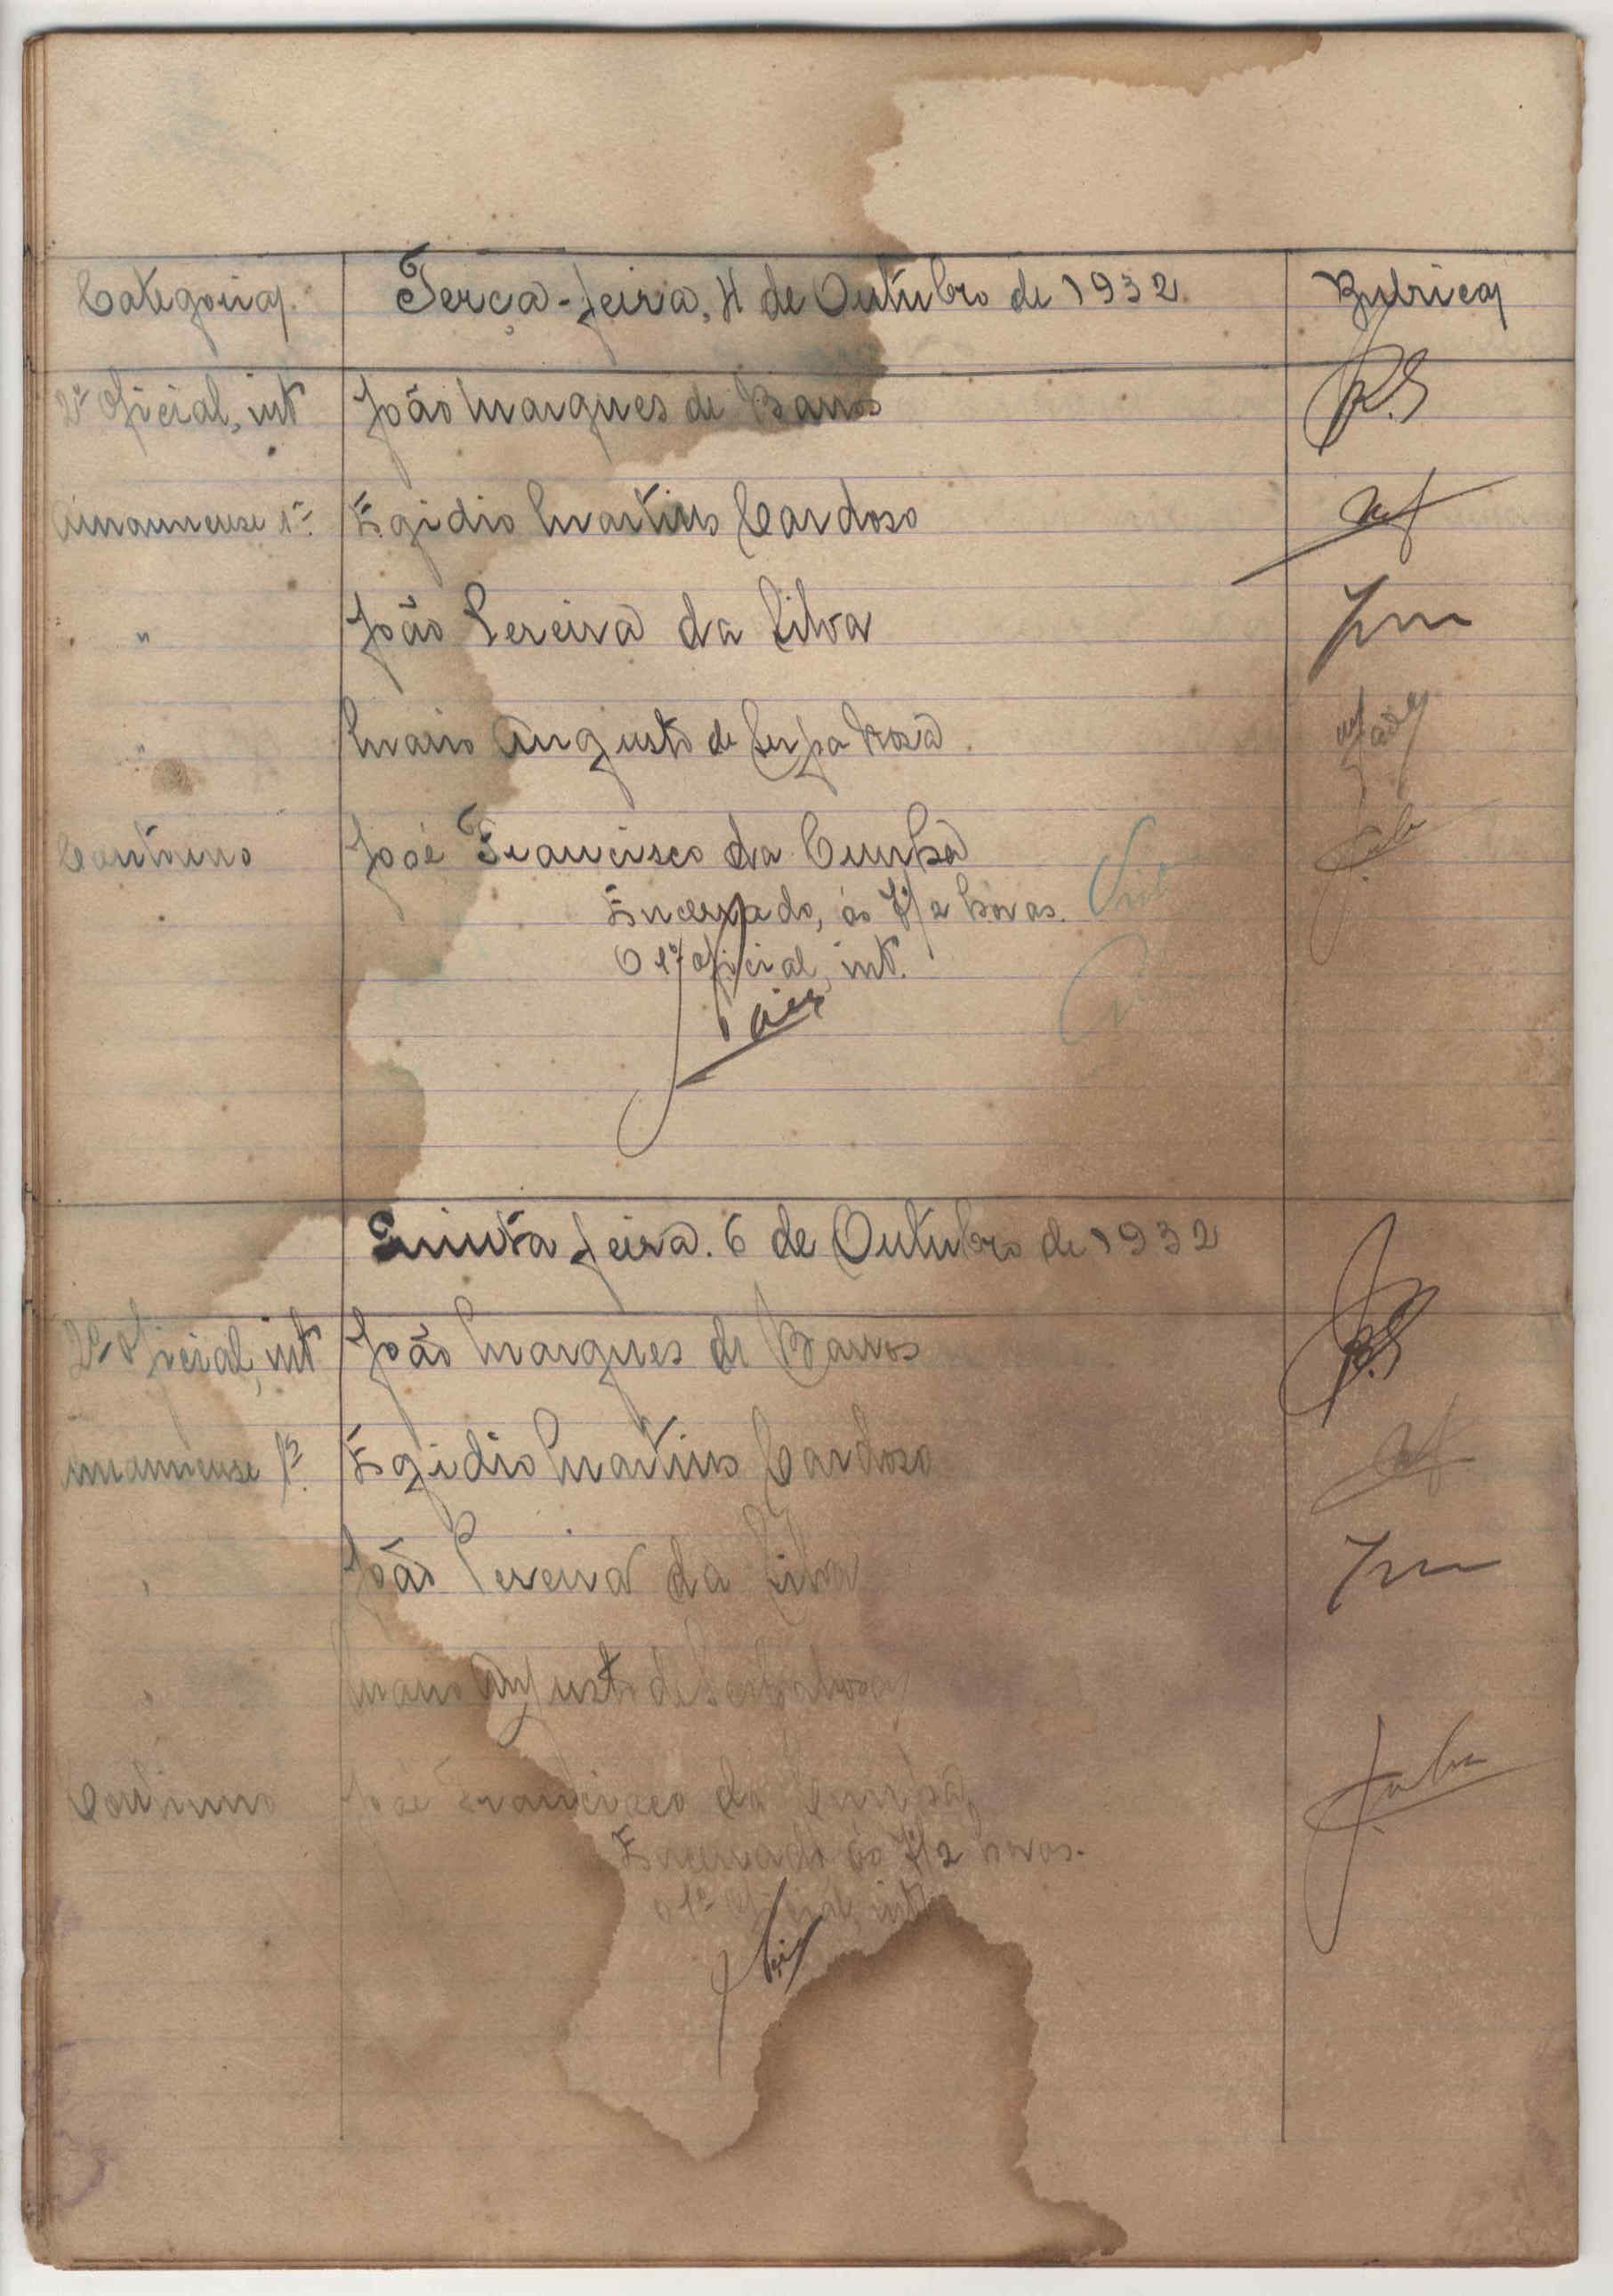 Categorias Terça-feira, 4 de Outubro de 1932 Rubricas
2º oficial, intº João Marques de Barros
Amanuense 1º. Egidio Martins Cardoso
" João Pereira da Silva
" Mario Augusto de Serpa Rosa
Contínuo José Francisco da Cunha
Encerrado, ás 7 1/2 horas. Visto
O 1º oficial, intº.
Pais
Quinta feira. 6 de Outubro de 1932
2º oficial, intº João Marques de Barros
Amanuense 1º. Egidio Martins Cardoso
" João Pereira da Silva
" Mario Augusto de Serpa Rosa
Contínuo José Francisco da Cunha
Encerrado ás 7 1/2 horas.
O 1º oficial, intº